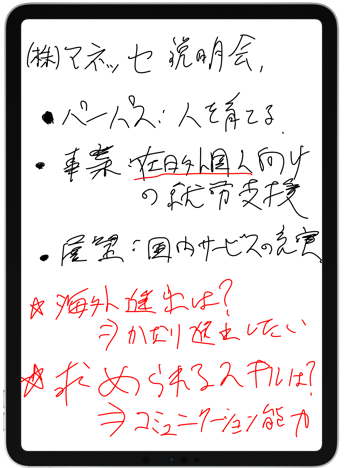 (株)マネッセ説明会,
• パーパス: 人を育てる.
• 事業: 在日外国人向け
の就労支援
• 展望: 国内サービスの充実
☆ 海外進出は?
⇒ かなり進出したい
☆ 求められるスキルは?
⇒ コミュニケーション能力